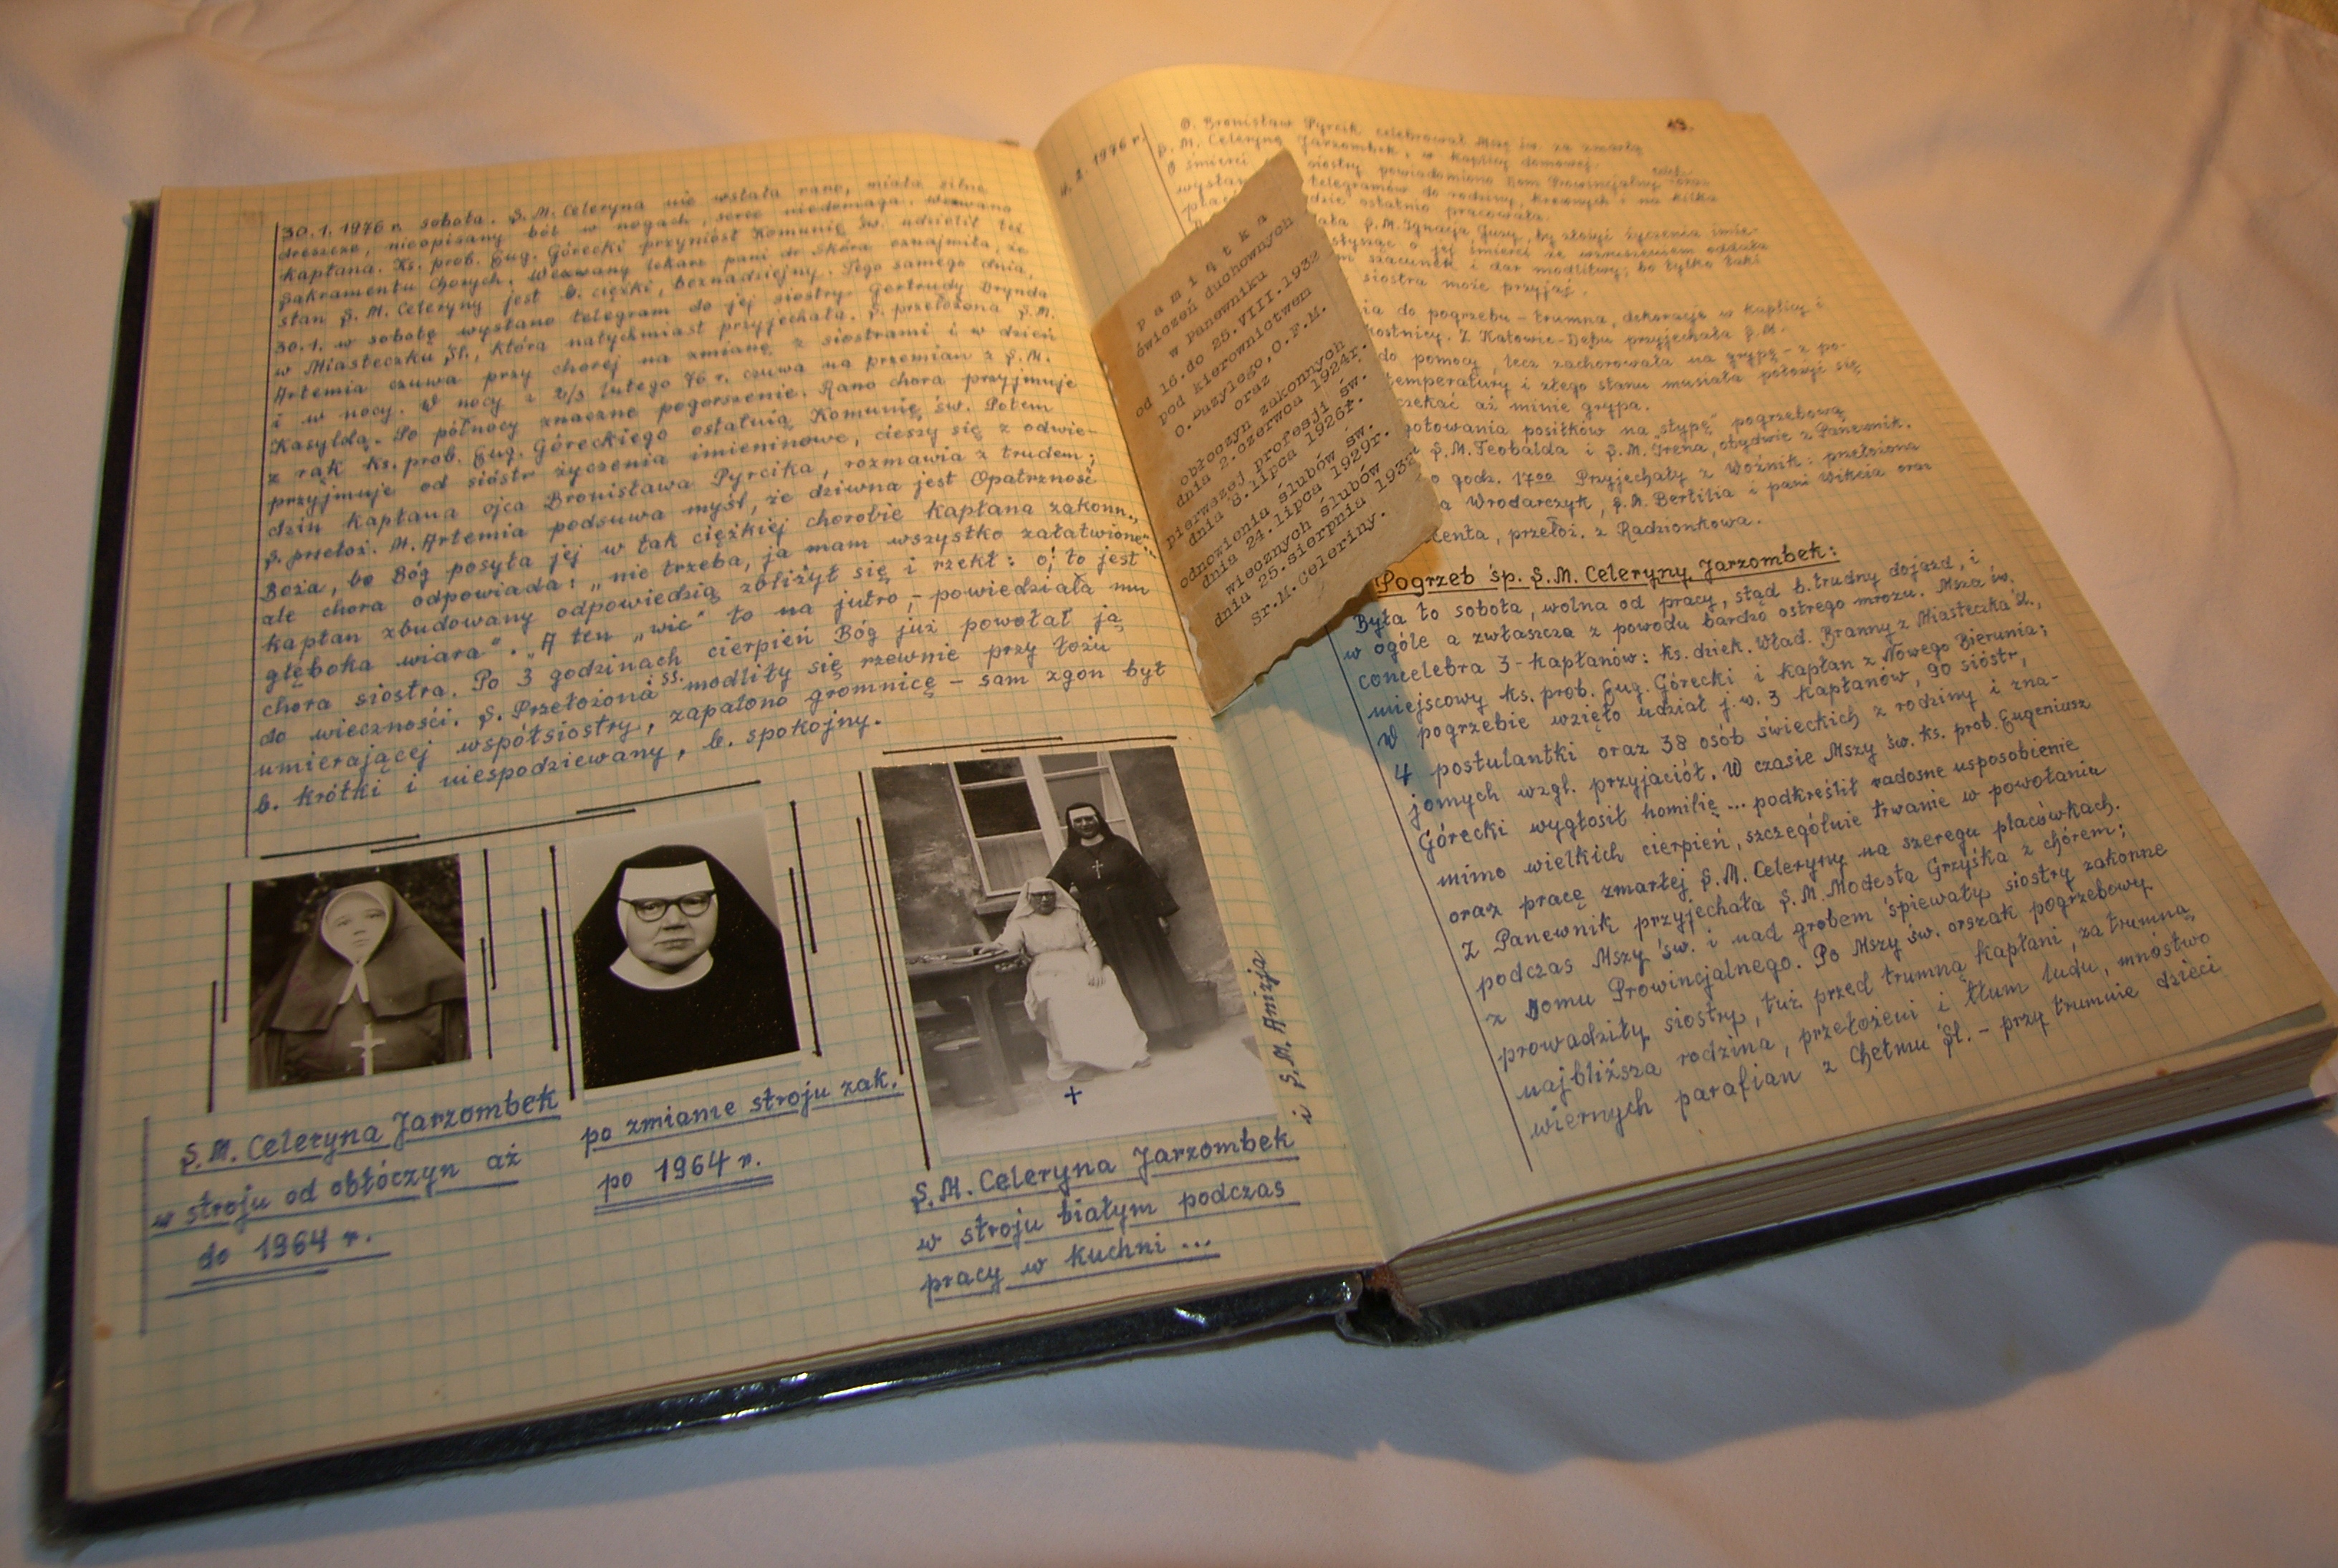 30.1.1976 r. sobota. S. M. Celeryna nie wstała rano, miała silne
dreszcze, nieopisany ból w nogach, serce niedomaga. Wezwano
kapłana. Ks. prob. Eug. Górecki przyniósł Komunię św. udzielił też
Sakramentu Chorych. Wezwany lekarz pani dr Skóra oznajmiła, że
stan S. M. Celeryny jest b. ciężki, beznadziejny. Tego samego dnia,
30.1. w sobotę wysłano telegram do jej siostry Gertrudy Drynda
w Miasteczku Śl., która natychmiast przyjechała. S. przełożona S.M.
Artemia czuwa przy chorej na zmianę z siostrami i w dzień
i w nocy. W nocy z 2/3 lutego 76 r. czuwa na przemian z S. M.
Kasyldą. Po północy znaczne pogorszenie. Rano chora przyjmuje
z rąk ks. prob. Eug. Góreckiego ostatnią Komunię św. Potem
przyjmuje od sióstr życzenia imieninowe, cieszy się z odwie-
dzin kapłana ojca Bronisława Pyrcika, rozmawia z trudem;
S. przełoż. M. Artemia podsuwa myśl, że dziwna jest Opatrzność
Boża, bo Bóg posyła jej w tak ciężkiej chorobie kapłana zakonn.,
ale chora odpowiada: „nie trzeba, ja mam wszystko załatwione"
kapłan zbudowany odpowiedzią zbliżył się i rzekł: o, to jest
głęboka wiara". „A ten „wic" to na jutro, - powiedziała mu
chora siostra. Po 3 godzinach cierpień Bóg już powołał ją
do wieczności. S. Przełożona ss. modliły się rzewnie przy łożu
umierającej współsiostry, zapalono gromnicę - sam zgon był
b. krótki i niespodziewany, b. spokojny.
S. M. Celeryna Jarzombek
w stroju od obłóczyn aż
do 1964 r.
po zmianie stroju zak.
po 1964 r.
+
S. M. Celeryna Jarzombek
w stroju białym podczas
pracy w kuchni ...
i S.M. Anizja
Pamiątka
ćwiczeń duchownych
w Panewniku
od 16. do 25. VIII. 1932
pod kierownictwem
O. Duzylego, O.F.M.
oraz
obłoczyn zakonnych
dnia 2. czerwca 1924r.
pierwszej profesji św.
dnia 8. lipca 1926r.
odnowienia ślubów św.
dnia 24. lipca 1929r.
wiecznych ślubów
dnia 25. sierpnia 1932
Sr. M. Celeriny.
1976 r.
O. Bronisław Pyrcik celebrował Mszę św. za zmarłą
S. M. Celerynę Jarzombek, w kaplicy domowej.
O śmierci siostry powiadomiono Dom Prowincjalny oraz
telegramów do rodziny, krewnych i na kilka
gdzie ostatnio pracowała.
S.M. Ignacja Guzy, by złożyć życzenia imie-
słysząc o jej śmierci ze wzruszeniem oddała
szacunek i dar modlitwy, bo tylko taki
siostra może przyjąć.
do pogrzebu - trumna, dekoracje w kaplicy i
kostnicy. Z Katowic-Dębu przyjechała S. M.
do pomocy, lecz zachorowała na grypę - z po-
temperatury i złego stanu musiała położyć się
czekać aż minie grypa.
gotowania posiłków na „stypę" pogrzebową
S.M. Teobalda i S.M. Irena, obydwie z Panewnik.
o godz. 17⁰⁰ Przyjechały z Woźnik: przełożona
Wrodarczyk, S.M. Bertilia i pani Wikcia oraz
centa, przełoż. z Radzionkowa.
Pogrzeb śp. S. M. Celeryny Jarzombek:
Była to sobota, wolna od pracy, stąd b. trudny dojazd, i
w ogóle a zwłaszcza z powodu bardzo ostrego mrozu. Msza św.
concelebra 3-kapłanów: ks. dziek. Wład. Branny z Miasteczka Śl.,
miejscowy ks. prob. Eug. Górecki i kapłan z Nowego Bierunia;
W pogrzebie wzięło udział j.w. 3 kapłanów, 90 sióstr,
4 postulantki oraz 38 osób świeckich z rodziny i zna-
jomych wzgl. przyjaciół. W czasie Mszy św. ks. prob. Eugeniusz
Górecki wygłosił homilię ... podkreślił radosne usposobienie
mimo wielkich cierpień, szczególnie trwanie w powołaniu
oraz pracę zmarłej S. M. Celeryny na szeregu placówkach.
Z Panewnik przyjechała S. M. Modesta Grzyśka z chórem;
podczas Mszy św. i nad grobem śpiewały siostry zakonne
z Domu Prowincjalnego. Po Mszy św. orszak pogrzebowy
prowadziły siostry, tuż przed trumną kapłani, za trumną
najbliższa rodzina, przełożeni i tłum ludu, mnóstwo
wiernych parafian z Chełmu Śl. - przy trumnie dzieci